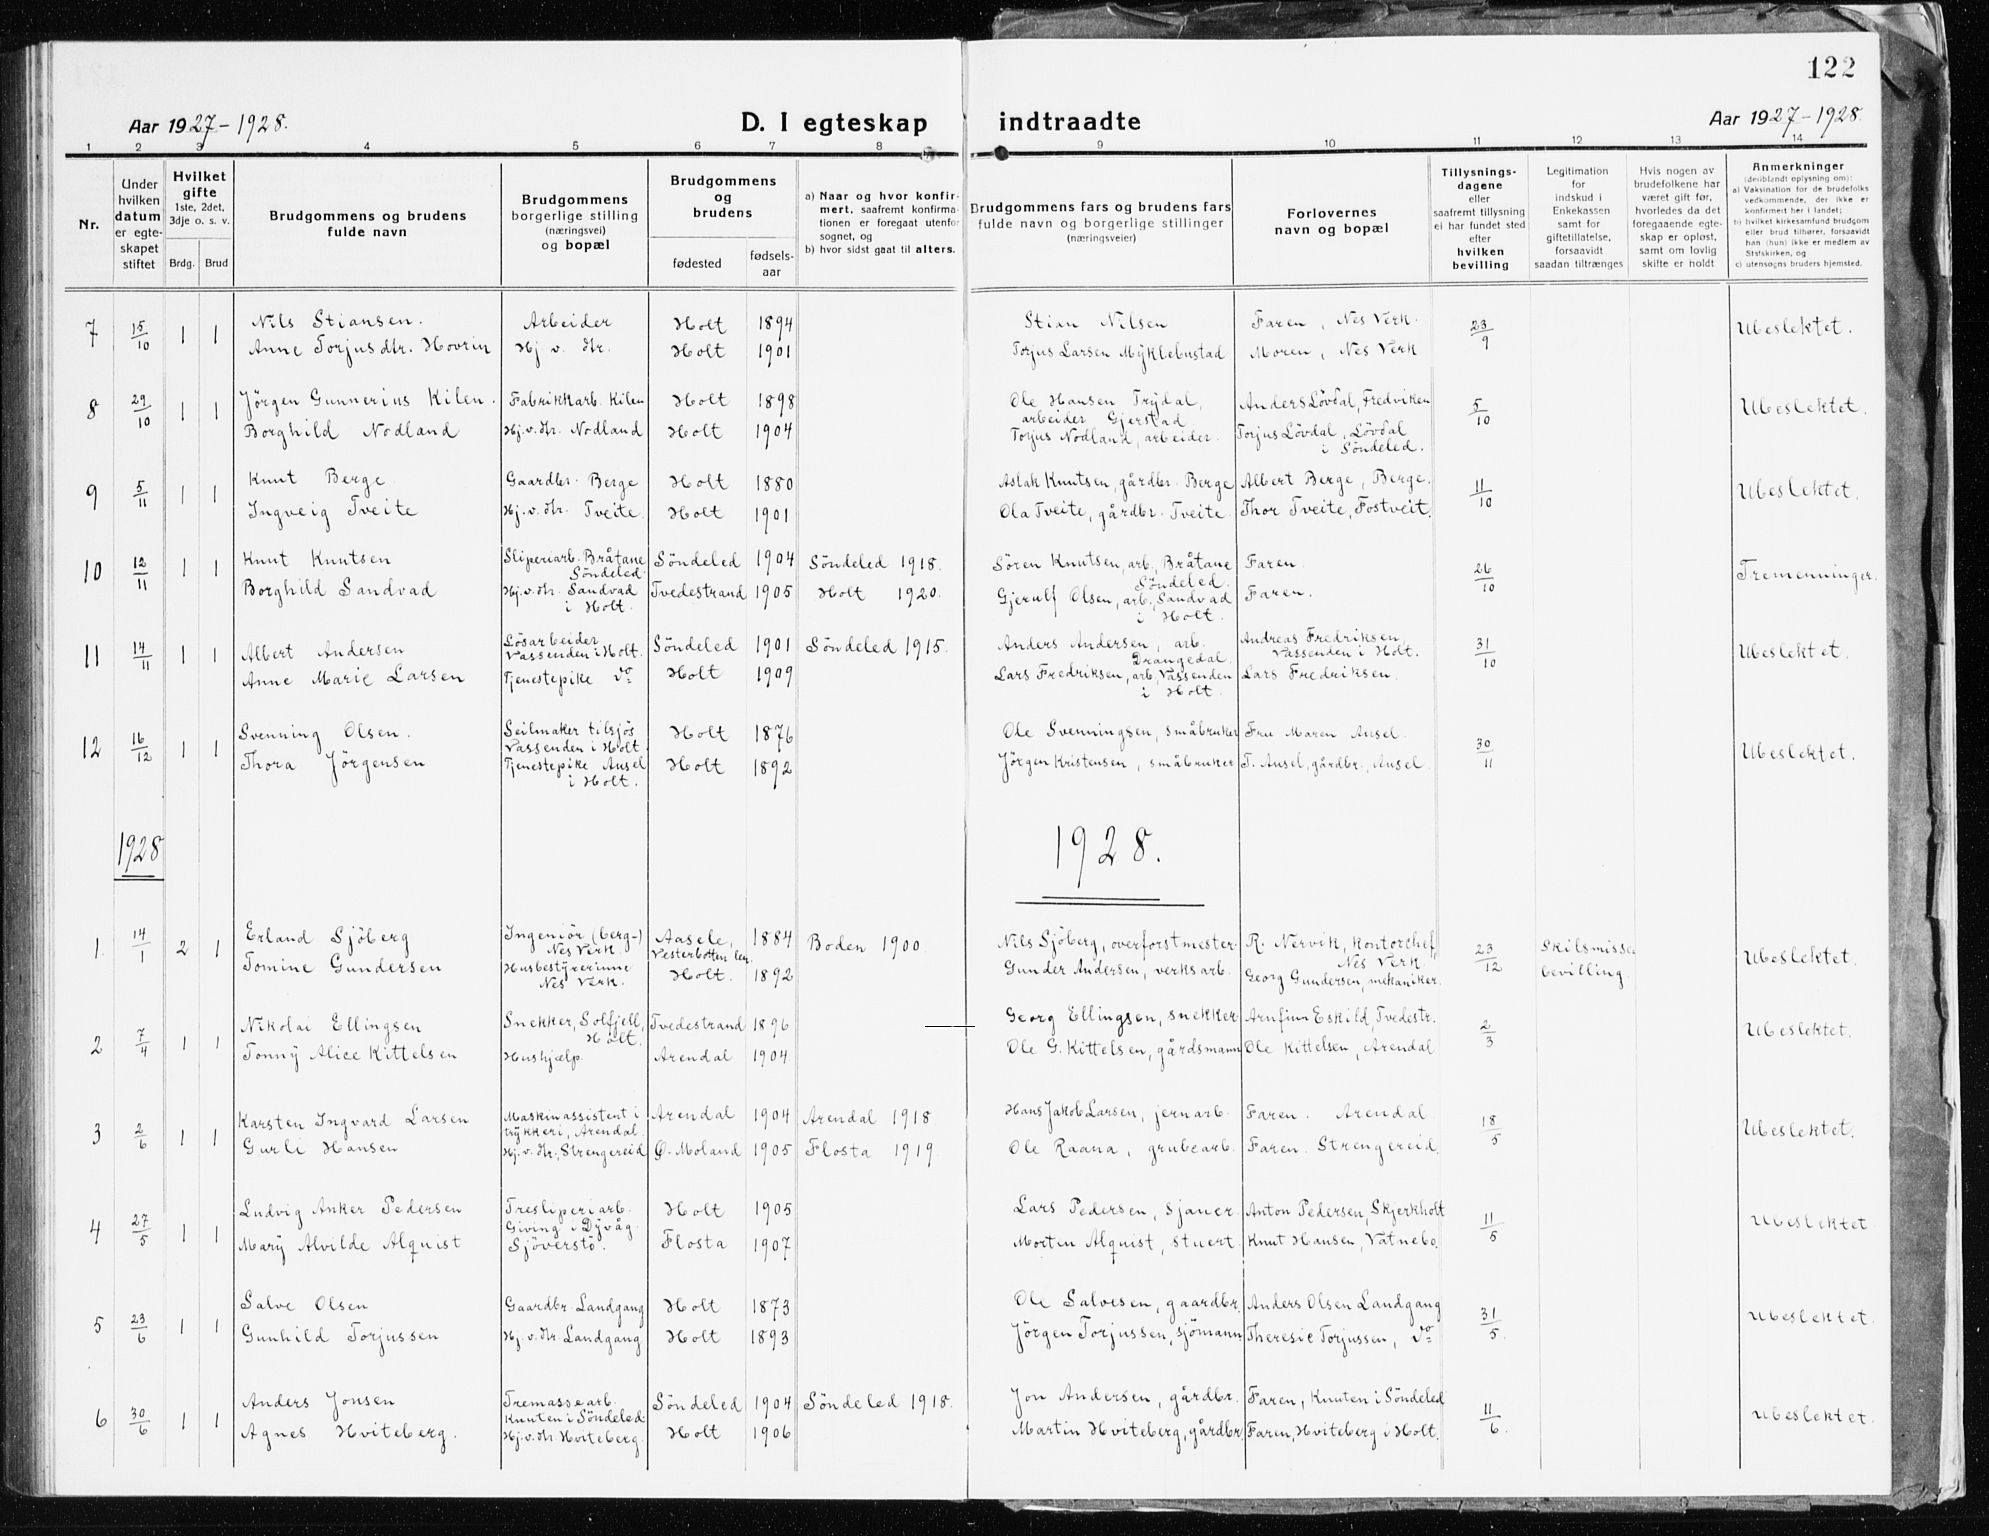 122
Aar 1927-1928.
D. I egteskap indtraadte
Aar 1927-1928.
1 2 3 4 5 6 7 8 9 10 11 12 13 14
Nr.
Under hvilken datum er egteskapet stiftet
Hvilket gifte 1ste, 2det, 3dje o. s. v.
Brdg. Brud
Brudgommens og brudens fulde navn
Brudgommens borgerlige stilling (næringsvei) og bopæl
Brudgommens og brudens
fødested
fødselsaar
a) Naar og hvor konfirmert, saafremt konfirmationen er foregaat utenfor sognet, og
b) hvor sidst gaat til alters.
Brudgommens fars og brudens fars fulde navn og borgerlige stillinger (næringsveier)
Forlovernes navn og bopæl
Tillysningsdagene eller saafremt tillysning ei har fundet sted efter hvilken bevilling
Legitimation for indskud i Enkekassen samt for giftetillatelse, forsaavidt saadan tiltrænges
Hvis nogen av brudefolkene har været gift før, hvorledes da det foregaaende egteskap er opløst, samt om lovlig skifte er holdt
Anmerkninger (deriblandt oplysning om):
a) Vaksination for de brudefolks vedkommende, der ikke er konfirmert her i landet;
b) hvilket kirkesamfund brudgom eller brud tilhører, forsaavidt han (hun) ikke er medlem av Statskirken, og
c) utensogns bruders hjemsted.
7 15/10 1 1 Nils Stiansen. Arbeider Holt 1894 Stian Nilsen Faren, Nes Verk. 23/9 Ubeslektet.
Anne Torjusdtr. Hovrin Hj. v. Hr. Holt 1901 Torjus Larsen Myklebustad Moren, Nes Verk
8 29/10 1 1 Jörgen Gunnerius Kilen. Fabrikkarb. Kilen Holt 1898 Ole Hansen Trydal, arbeider Gjerstad Anders Lövdal, Fredviken 5/10 Ubeslektet.
Borghild Nodland Hj. v. Hr. Nodland Holt 1904 Torjus Nodland, arbeider. Torjus Lövdal, Lövdal i Söndeled.
9 5/11 1 1 Knut Berge. Gaardbr. Berge Holt 1880 Aslak Knutsen, gårdbr. Berge Albert Berge, Berge. 11/10 Ubeslektet.
Ingveig Tveite Hj. v. Hr. Tveite. Holt 1901 Ola Tveite, gårdbr. Tveite. Thor Tveite, Fostveit.
10 12/11 1 1 Knut Knutsen Sliperiarb. Bråtane Söndeled. Söndeled 1904 Söndeled 1918. Sören Knutsen, arb., Bråtane Söndeled. Faren. 26/10 Tremenninger.
Borghild Sandvad Hj. v. Hr. Sandvad i Holt. Tvedestrand 1905 Holt 1920. Gjerulf Olsen, arb., Sandvad i Holt. Faren.
11 14/11 1 1 Albert Andersen Lösarbeider Vassenden i Holt. Söndeled 1901 Söndeled 1915. Anders Andersen, arb. Drangedal. Andreas Fredriksen, Vassenden i Holt. 31/10 Ubeslektet.
Anne Marie Larsen Tjenestepike do Holt 1909 Lars Fredriksen, arb., Vassenden i Holt. Lars Fredriksen.
12 16/12 1 1 Svenning Olsen. Seilmaker tilsjös Vassenden i Holt. Holt 1876 Ole Svenningsen, småbruker Fru Maren Ausel. 30/11 Ubeslektet.
Thora Jörgensen Tjenestepike Ausel i Holt. Holt 1892 Jörgen Kristensen, småbruker T. Ausel, gårdbr., Ausel.
1928 1928.
1. 14/1 2 1 Erland Sjöberg Ingeniör (berg-) Nes Verk. Aasele, Vesterbotten len. 1884 Boden 1900. Nils Sjöberg, overforstmester R. Nervik, kontorchef Nes Verk. 23/12 Skilsmissebevilling. Ubeslektet.
Tomine Gundersen Husbestyrerinne Nes Verk. Holt. 1892 Gunder Andersen, verksarb. Georg Gundersen, mekaniker.
2 7/4 1 1 Nikolai Ellingsen Snekker, Solfjell, Holt. Tvedestrand 1896 Georg Ellingsen, snekker Arnfinn Eskild, Tvedestr. 2/3 Ubeslektet.
Tonny Alice Kittelsen Hushjælp. Arendal 1904 Ole G. Kittelsen, gårdsmann Ole Kittelsen, Arendal
3 2/6 1 1 Karsten Ingvard Larsen Maskinassistent i trykkeri, Arendal. Arendal 1904 Arendal 1918 Hans Jakob Larsen, jernarb. Faren. Arendal 18/5 Ubeslektet.
Gurli Hansen Hj. v. Hr., Strengereid Ø. Moland 1905 Flosta 1919. Ole Raana, grubearb. Faren. Strengereid.
4 27/5 1 1 Ludvig Anker Pedersen Tresliperiarb. Giving i Dyvåg. Holt 1905 Lars Pedersen, sjauer Anton Pedersen, Skjerkholt 11/5 Ubeslektet
Mary Alvilde Alquist Sjöverstö. Flosta 1907 Morten Alquist, stuert Knut Hansen, Vatnebo.
5 23/6 1 1 Salve Olsen Gaardbr. Landgang Holt 1873 Ole Salvesen, gaardbr. Anders Olsen Landgang 31/5. Ubeslektet.
Gunhild Torjussen Hj. v. Hr. Landgang Holt 1893 Jörgen Torjussen, sjömann Theresie Torjussen, do
6 30/6 1 1 Anders Jonsen Tremassearb. Knuten i Söndeled. Söndeled 1904 Söndeled 1918. Jon Andersen, gårdbr. Faren, Knuten i Söndeled 11/6. Ubeslektet.
Agnes Hviteberg. Hj. v. Hr. Hviteberg. Holt 1906 Martin Hviteberg, gårdbr. Faren, Hviteberg i Holt.